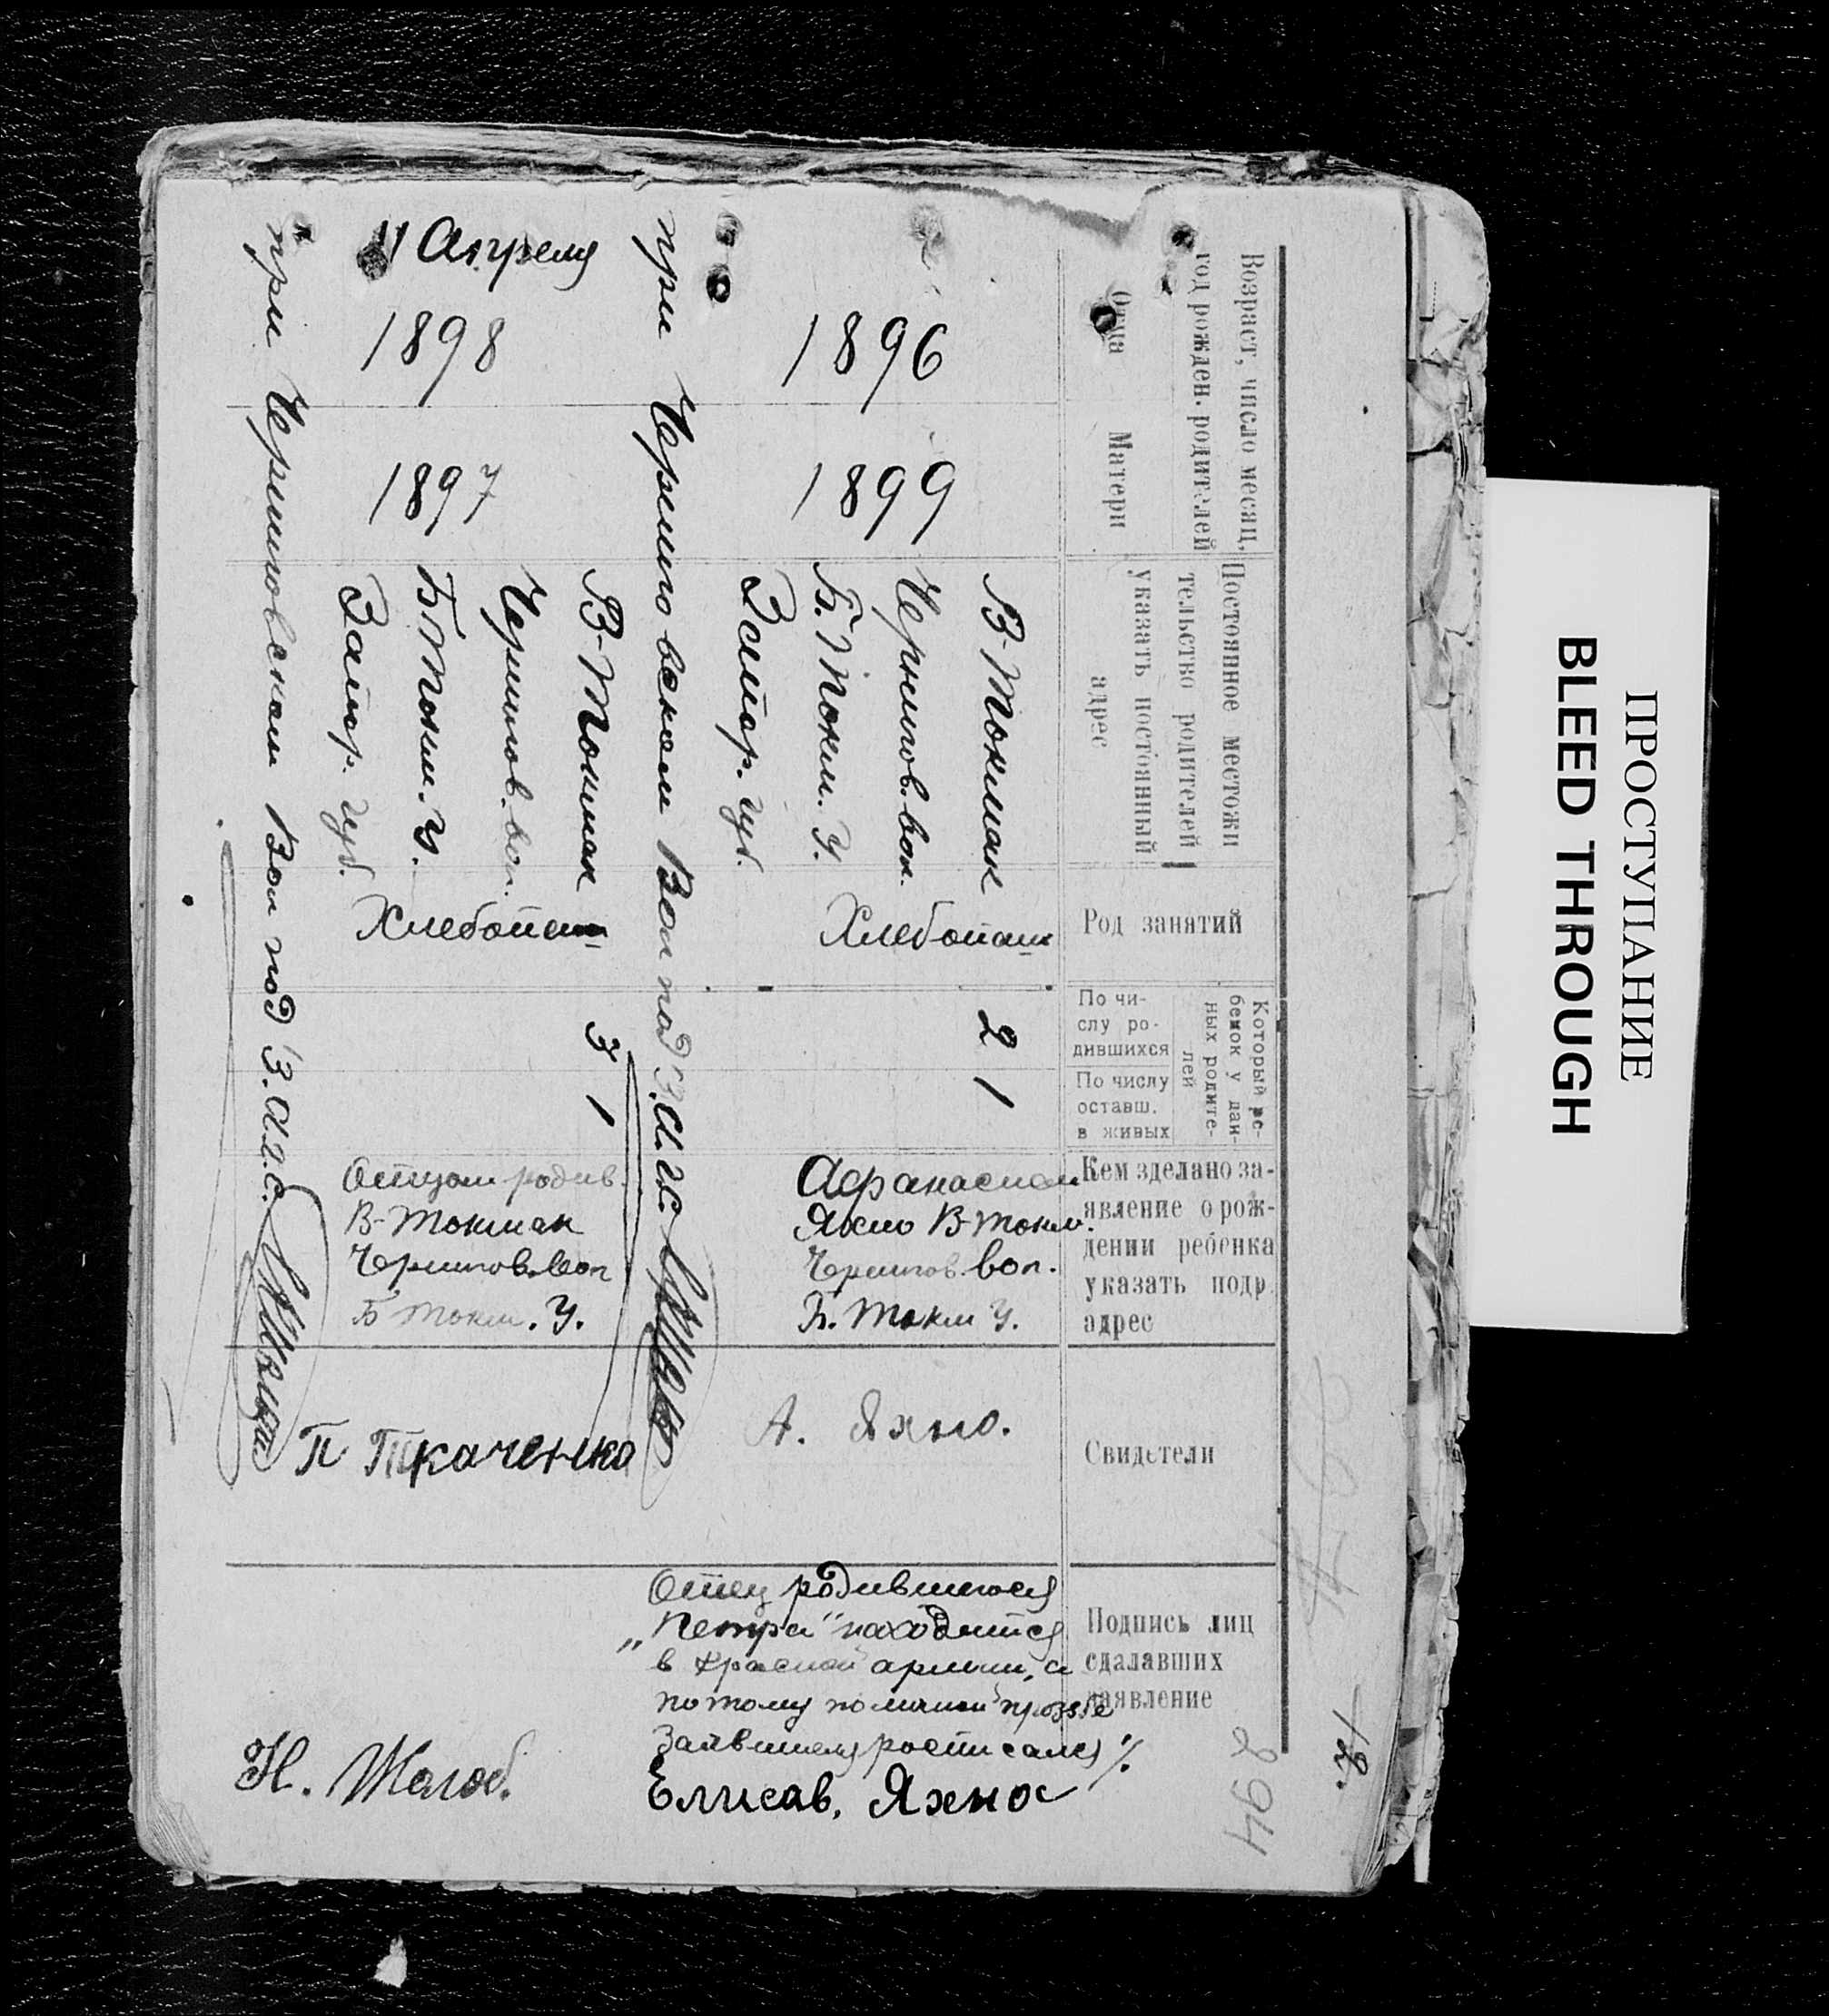 Возраст, число месяц,
год рожден. родителей
Отца
Матери
Постоянное местожи
тельство родителей
указать постоянный
адрес
Род занятий
Который ре-
бенок у дан-
ных родите-
лей
По чи-
слу ро-
дившихся
По числу
оставш.
в живых
Кем зделано за-
явление о рож-
дении ребенка
указать подр
адрес
Свидетели
Подпись лиц
сдалавших
заявление
1896
1899
В-Токмак
Чернигов. вол.
Б. Токм. У.
Запор. губ.
Хлебопаш
2
1
Афанасием
Яхно В-Токм.
Чернигов. вол.
Б. Токм У.
А. Яхно.
Отец родившегося
„Петра" находится
в красной армии, а
потому по личной прозбе
Заявителя росписался
Елисав. Яхно
при Черниговском Вол под З.А.Г.С.
11 Апреля
1898
1897
В-Токмак
Чернигов. вол.
Б Токм. У.
Запор. губ.
Хлебопаш
3
1
Отцом родив.
В-Токмак
Чернигов. вол
Б Токм. У.
П Ткаченко
Н. Жалоб.
при Черниговском Вол под З.А.Г.С.
894
12.
ПРОСТУПАНИЕ
BLEED THROUGH